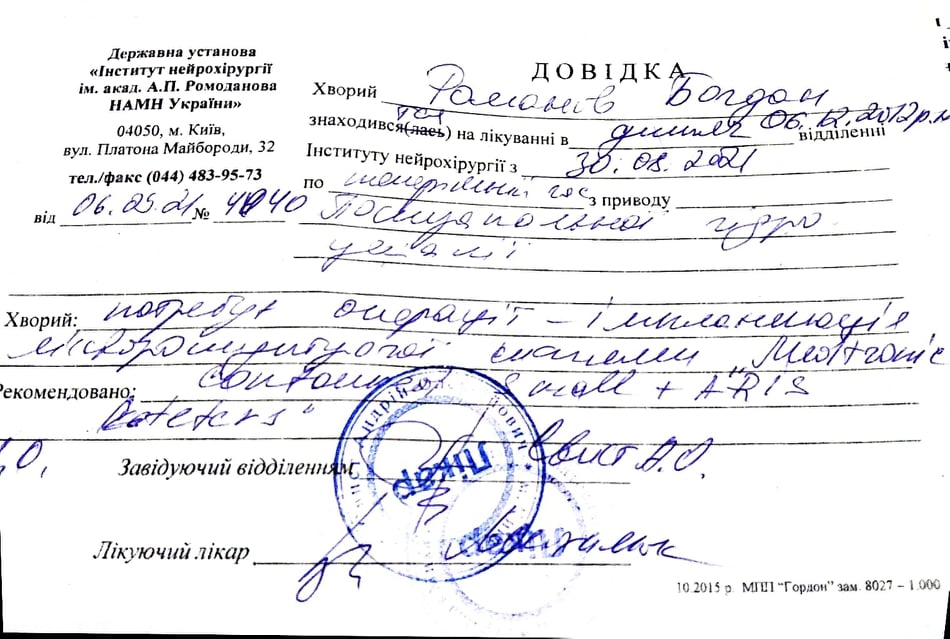 Державна установа
«Інститут нейрохірургії
ім. акад. А.П. Ромоданова
НАМН України»
04050, м. Київ,
вул. Платона Майбороди, 32
тел./факс (044) 483-95-73
від 06.09.21 № 4040
ДОВІДКА
Хворий Романов Богдан
06.12.2012р.н
знаходився(лась) на лікуванні в відділенні
Інституту нейрохірургії з 30.08.2021
по теперішній час з приводу
гідро
цефалії
Хворий: потребує операції – імплантація
системи Medtronic
Рекомендовано: Small + ARIS
Завідуючий відділенням А.О.
Лікар
Лікуючий лікар
10.2015 р. МПП "Гордон" зам. 8027 – 1.000